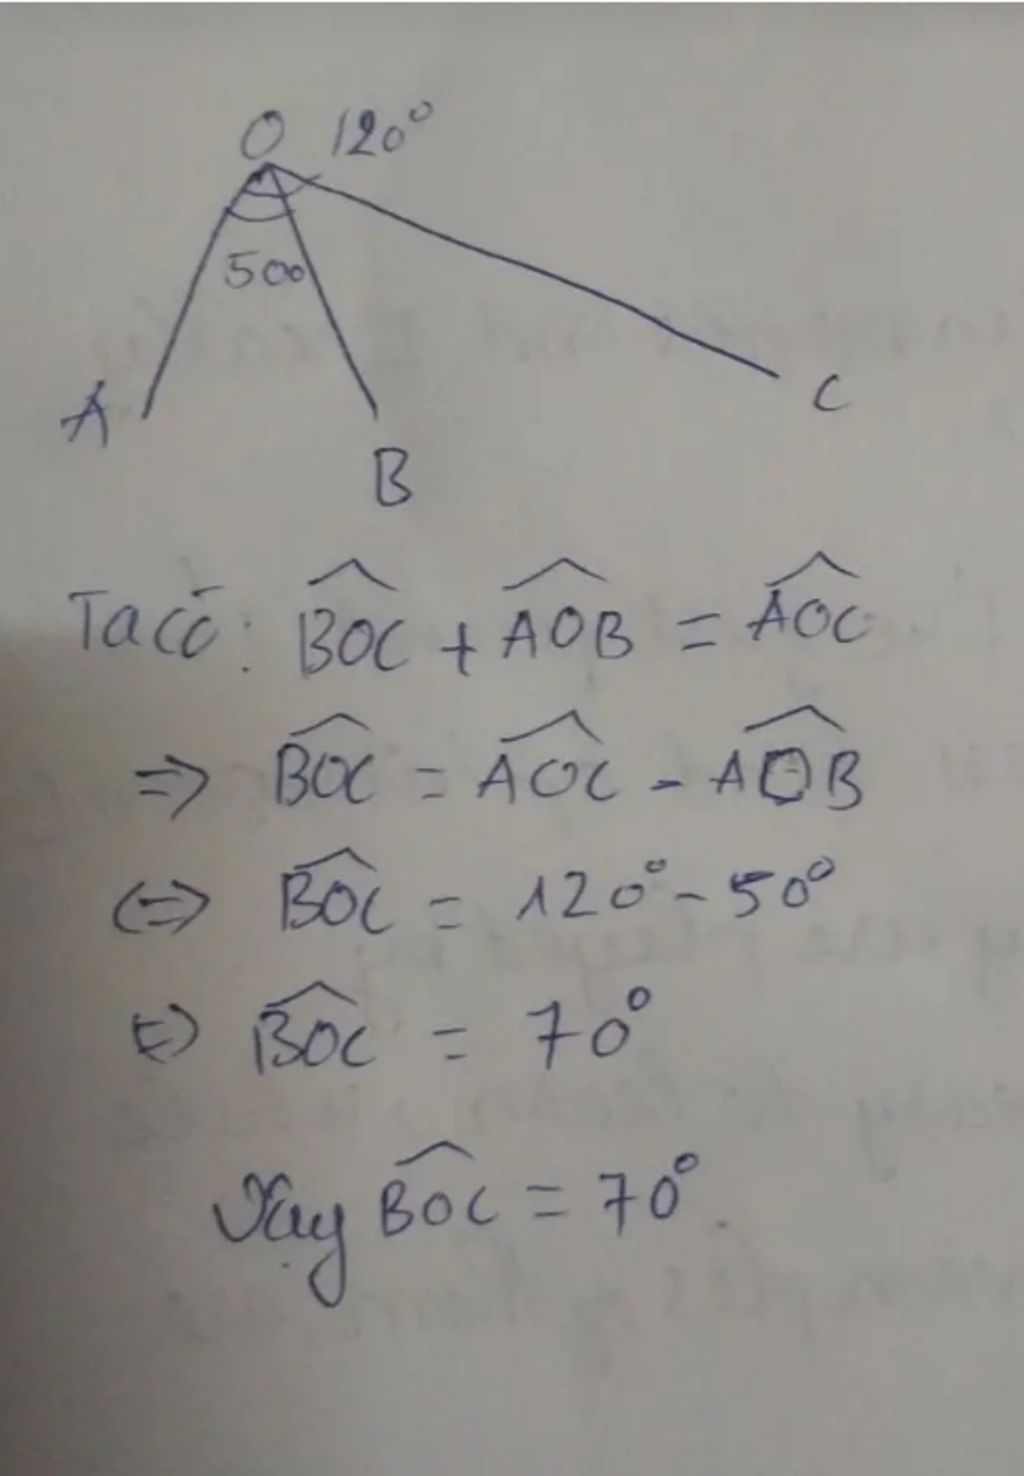 O 120°
50°
A
B
C
Ta có: \widehat{BOC} + \widehat{AOB} = \widehat{AOC}
=> \widehat{BOC} = \widehat{AOC} - \widehat{AOB}
<=> \widehat{BOC} = 120° - 50°
<=> \widehat{BOC} = 70°
Vậy \widehat{BOC} = 70°.